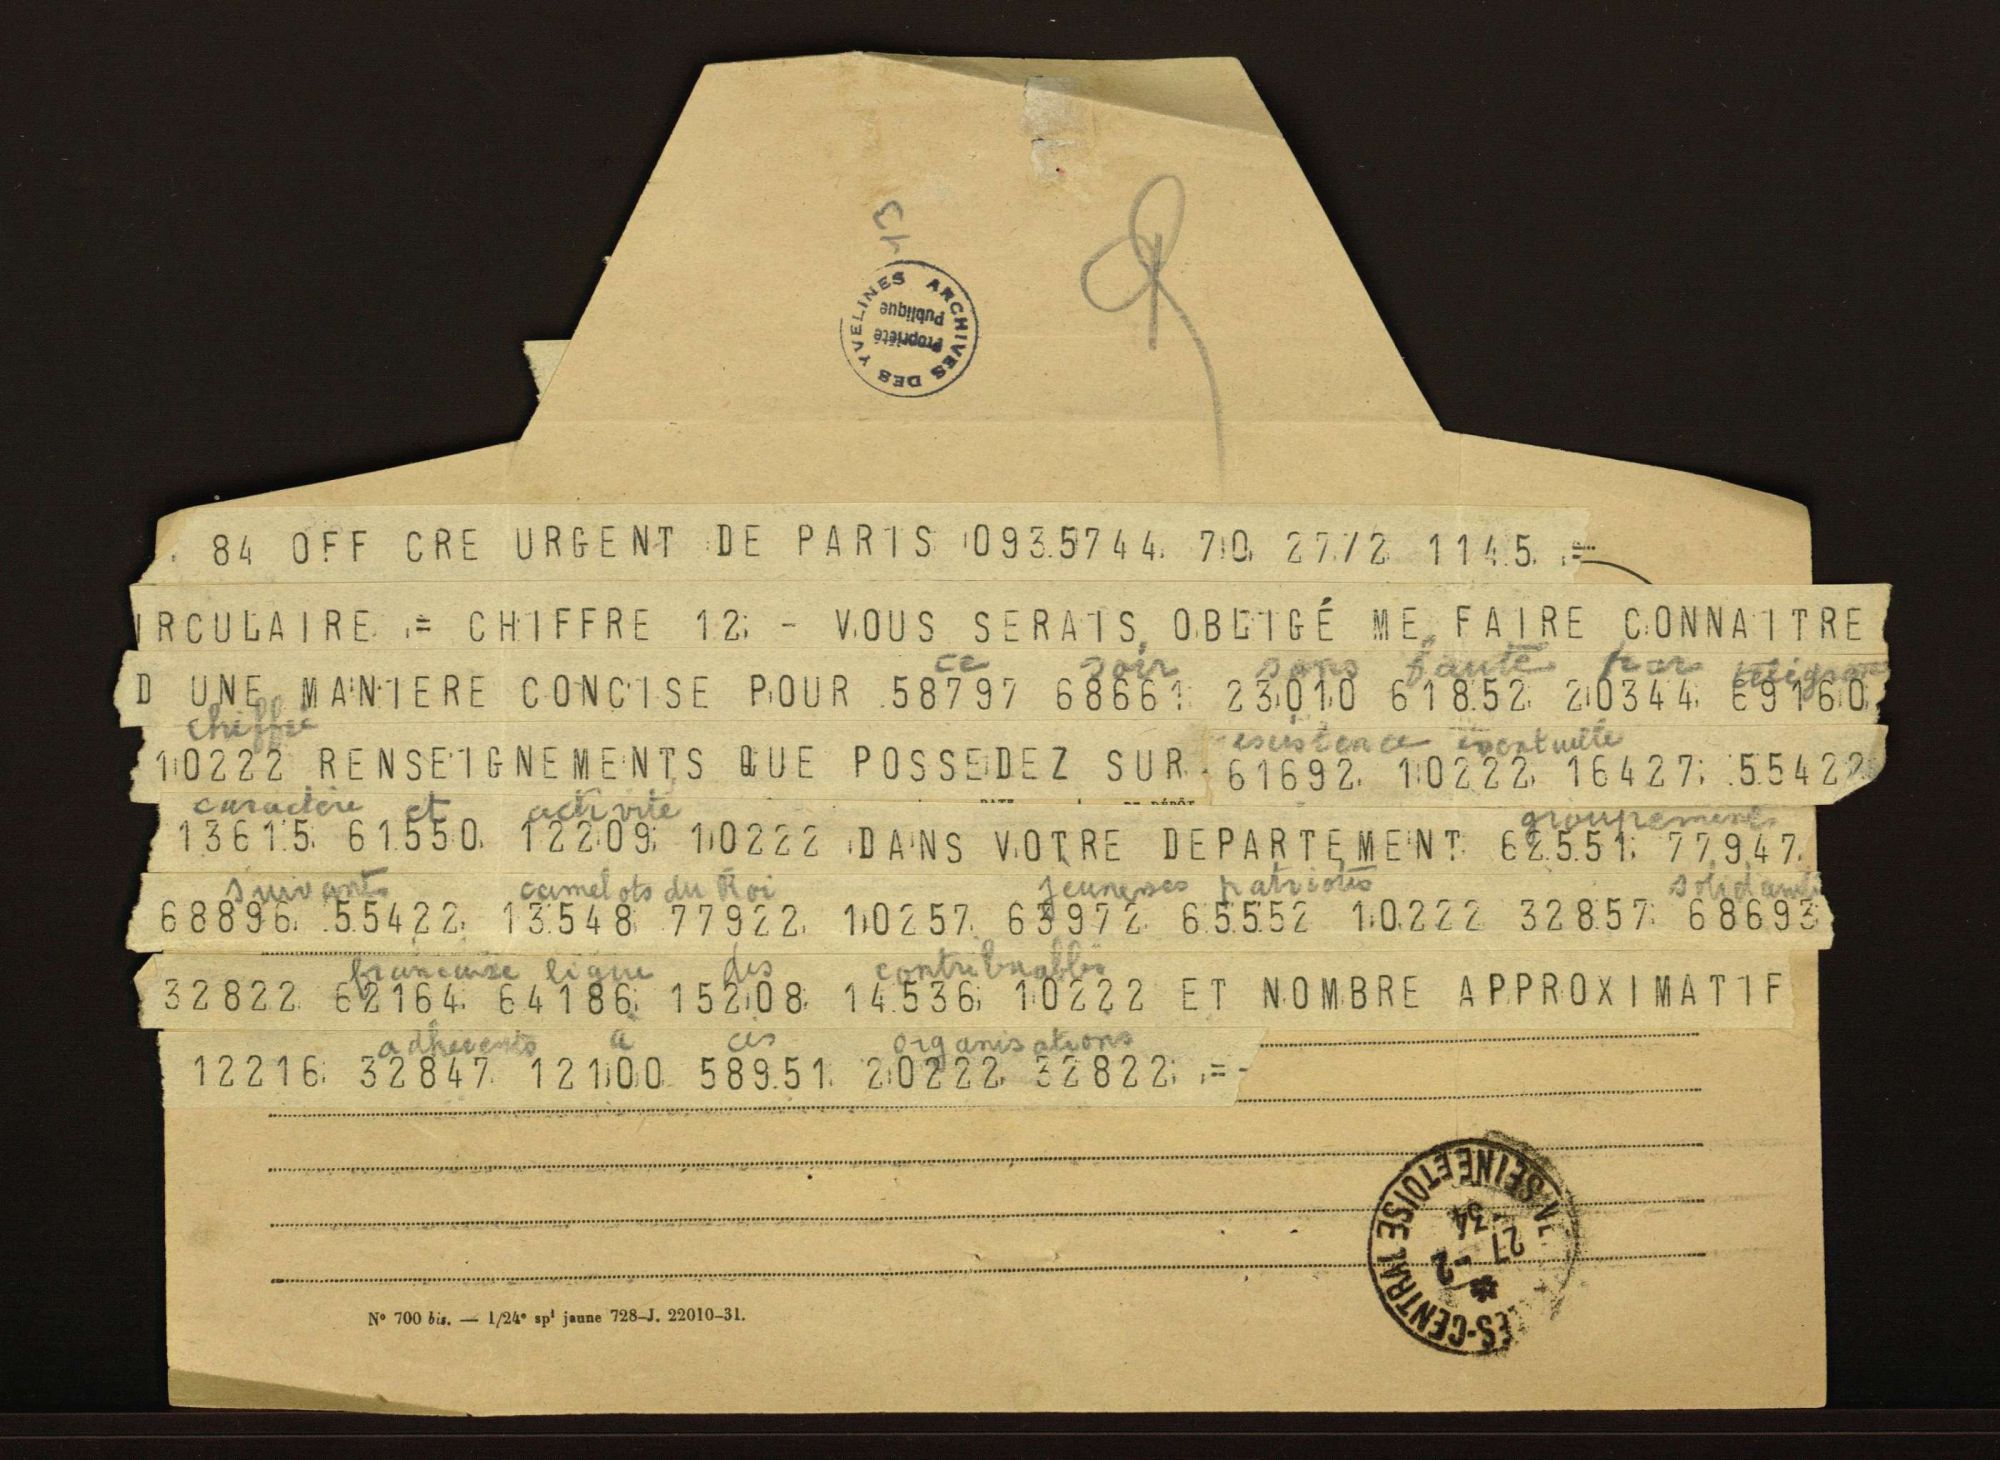 43
ARCHIVES DES YVELINES
Propriété
Publique
84 OFF CRE URGENT DE PARIS 0935744 70 27/2 1145 =
IRCULAIRE = CHIFFRE 12 - VOUS SERAIS OBLIGÉ ME FAIRE CONNAITRE
ce soir sans faute par
D UNE MANIERE CONCISE POUR 58797 68661 23010 61852 20344 69160
chiffré
existence éventuelle
10222 RENSEIGNEMENTS QUE POSSEDEZ SUR 61692 10222 16427 55422
caractère et activité groupements
13615 61550 12209 10222 DANS VOTRE DEPARTEMENT 62551 77947
suivants camelots du Roi jeunesses patriotes solidarité
68896 55422 13548 77922 10257 63972 65552 10222 32857 68693
française ligue des contribuables
32822 62164 64186 15208 14536 10222 ET NOMBRE APPROXIMATIF
adhérents à ces organisations
12216 32847 12100 58951 20222 32822 =-
ES-CENTRAL SEINE ET OISE
27-2
34
N° 700 bis. — 1/24e spl jaune 728-J. 22010-31.